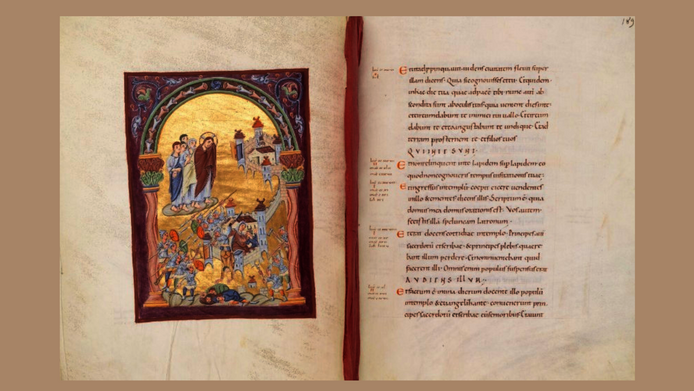 Et ut adpropinquauit uidens ciuitatem fleuit super
illam dicens · Quia si cognouisses et tu · Et quidem
in hac die tua quae ad pacem tibi nunc aut ab
scondita sunt ab oculis tuis quia uenient dies in te
et circumdabunt te inimici tui uallo · Et circum
dabunt te et coangustabunt te undique · Et ad
terram prosternent te et filios tuos
QUI IN TE SUNT ·
Et non relinquent in te lapidem super lapidem eo
quod non cognoueris tempus uisitationis tuae ·
Et ingressus in templum coepit eicere uendentes
in illo & ementes dicens illis · Scriptum est quia
domus mea domus orationis est · Vos autem
fecistis illam speluncam latronum ·
Et erat docens cotidie in templo · Principes aut
sacerdotum et scribae & principes plebis quaere
bant illum perdere · Et non inueniebant quid
facerent illi · Omnis enim populus suspensus erat
AUDIENS ILLUM ·
Et factum est in una dierum docente illo populum
in templo & euangelizante · conuenerunt prin
cipes sacerdotum et scribae cum senioribus et aiunt